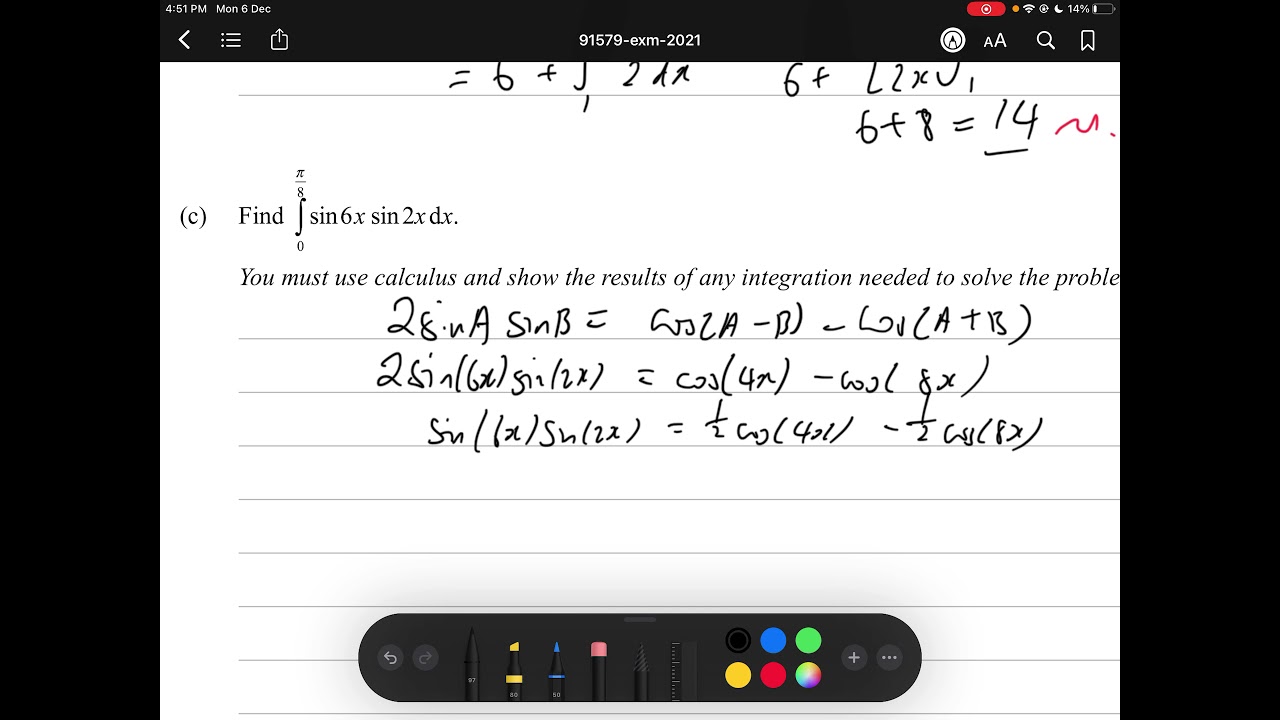 4:51 PM Mon 6 Dec
14%
91579-exm-2021
AA
= 6 + ∫₁ 2 dx 6 + [2x]₁
6 + 8 = 14 M.
(c) Find ∫₀^(π/8) sin 6x sin 2x dx.
You must use calculus and show the results of any integration needed to solve the proble
2 sin A sin B = cos(A - B) - cos(A + B)
2 sin(6x) sin(2x) = cos(4x) - cos(8x)
sin(6x) sin(2x) = 1/2 cos(4x) - 1/2 cos(8x)
97
80
50